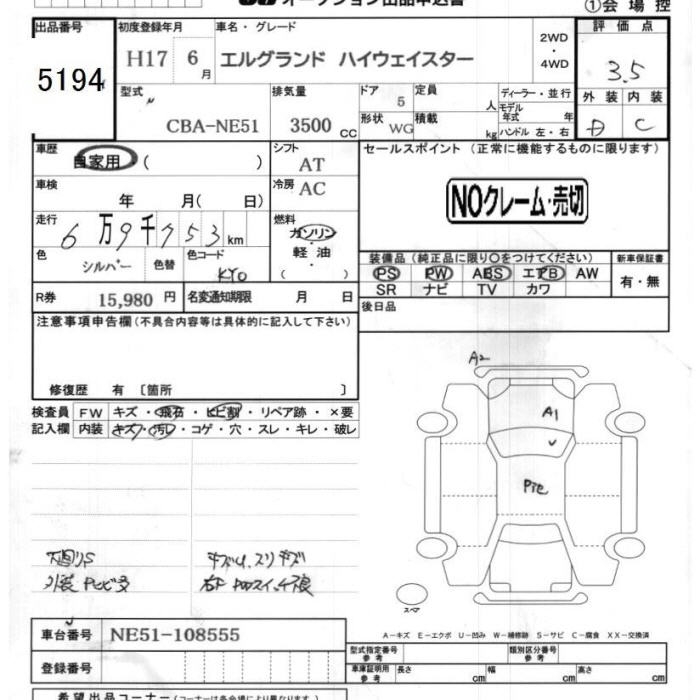 オークション出品申込書 ①会場控
出品番号 初度登録年月 車名・グレード 2WD・4WD 評価点
5194 H17 6月 エルグランド ハイウェイスター 3.5
型式 排気量 ドア 5 定員 人 ディーラー・並行 外装 内装
CBA-NE51 3500cc 形状 WG 積載 kg モデル年式 年 ハンドル 左・右 D C
車歴 自家用 ( ) シフト AT セールスポイント (正常に機能するものに限ります)
車検 年 月( 日) 冷房 AC NOクレーム・売切
走行 6万9千753km 燃料 ガソリン・軽油・( )
色 シルバー 色替 色コード KY0 装備品(純正品に限り〇をつけてください) 新車保証書
PS PW ABS エアB AW 有・無
SR ナビ TV カワ
R券 15,980円 名変通知期限 月 日 後日品
注意事項申告欄(不具合内容等は具体的に記入して下さい)
修復歴 有 〔箇所 〕
検査員 FW キズ・飛石・ヒビ割・リペア跡・×要
記入欄 内装 キズ・汚レ・コゲ・穴・スレ・キレ・破レ
A2
A1
スペア
A-キズ E-エクボ U-凹み W-補修跡 S-サビ C-腐食 XX-交換済
車台番号 NE51-108555 型式指定番号 参考 類別区分番号 参考
登録番号 車庫証明用 参考 長さ cm 幅 cm 高さ cm
希望出品コーナー(コーナーは各会場により異なります)